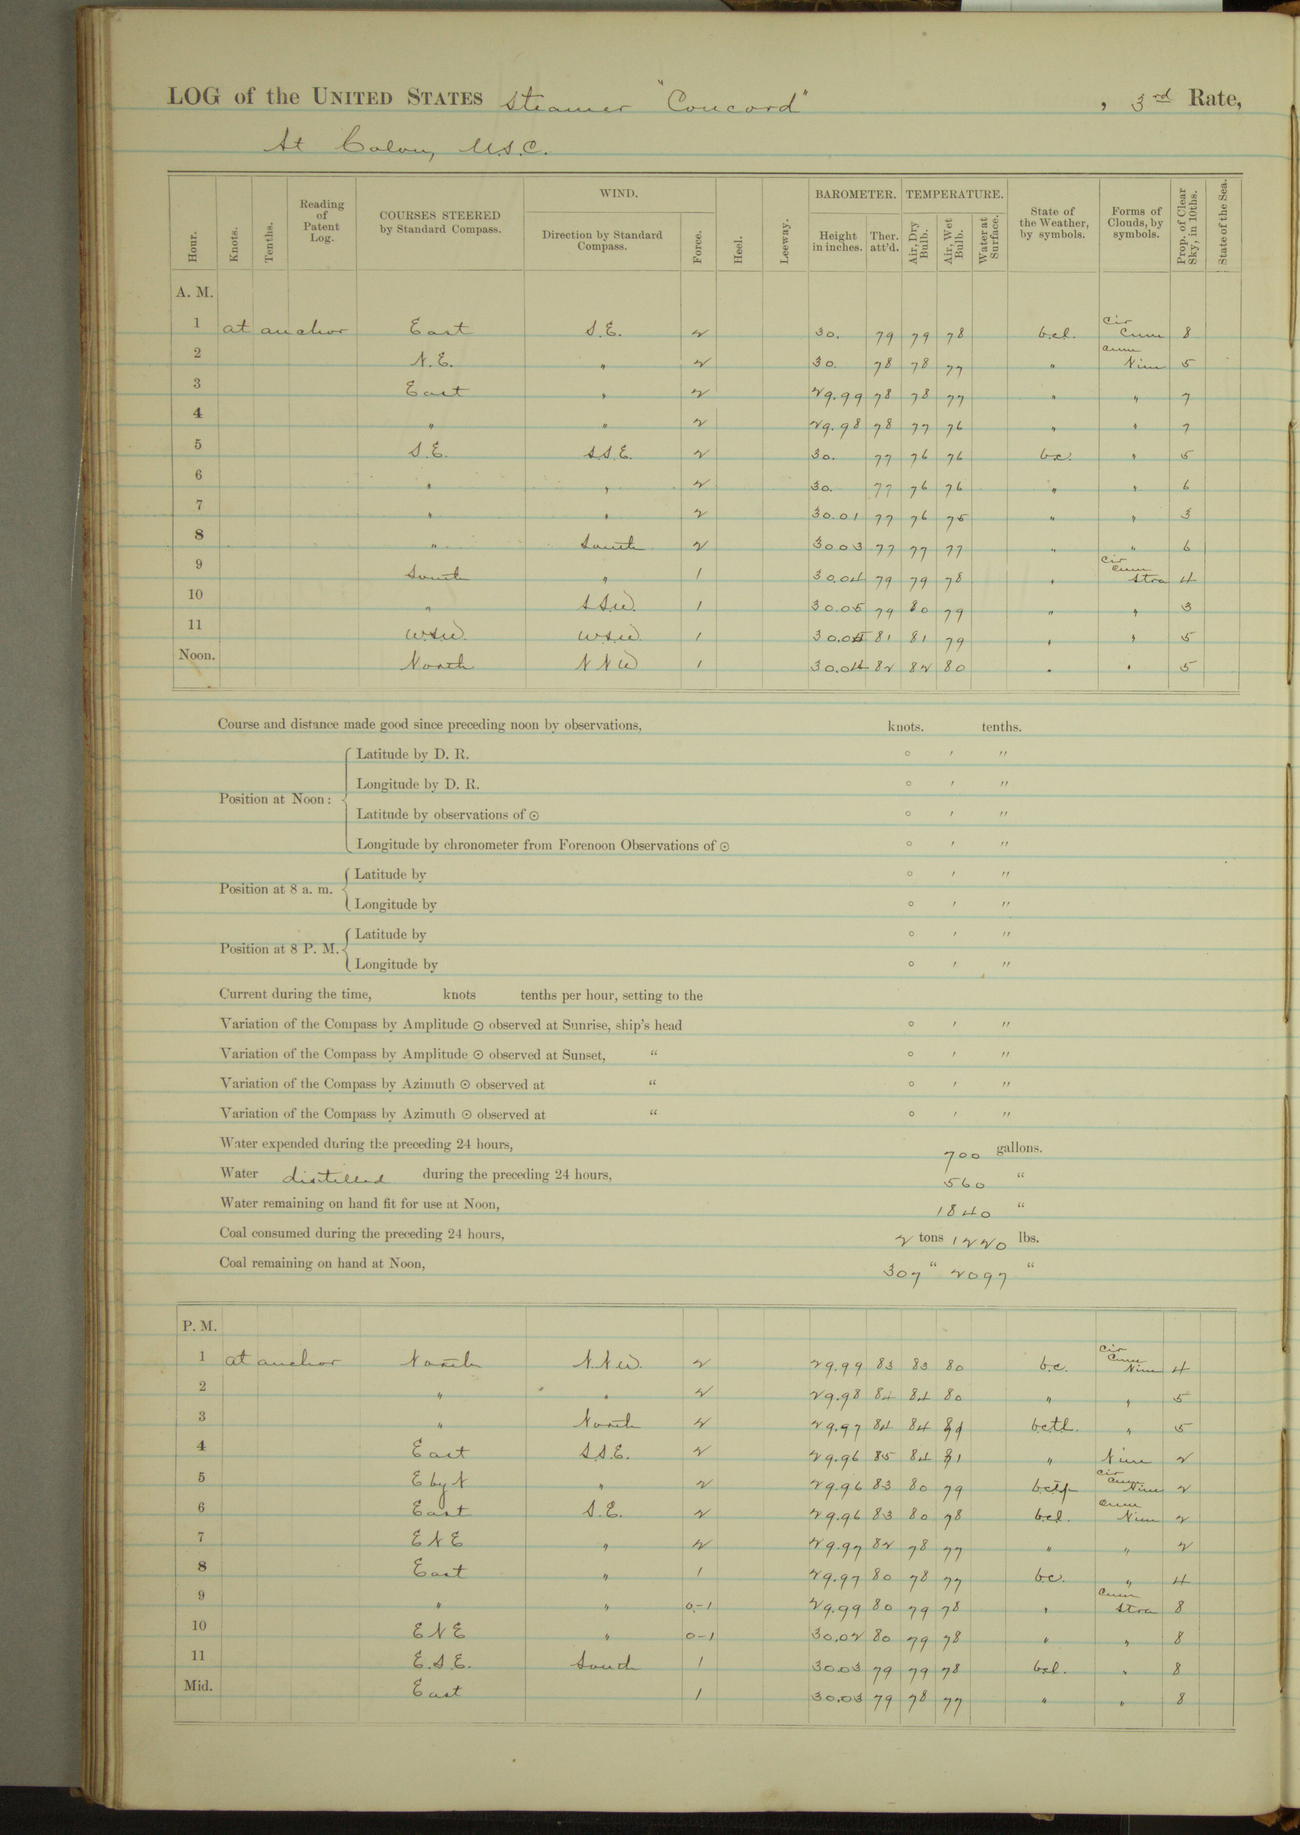 LOG of the UNITED STATES Steamer "Concord" , 3rd Rate,
At Colon, U.S.C.
Hour. Knots. Tenths. Reading of Patent Log. COURSES STEERED by Standard Compass. WIND. Direction by Standard Compass. Force. Heel. Leeway. BAROMETER. Height in inches. Ther. att'd. TEMPERATURE. Air, Dry Bulb. Air, Wet Bulb. Water at Surface. State of the Weather, by symbols. Forms of Clouds, by symbols. Prop. of Clear Sky, in 10ths. State of the Sea.
A. M.
1 at anchor East S.E. 2 30. 79 79 78 b.c.l. Cir Cum 8
2 N.E. " 2 30. 78 78 77 " Cum Nim 5
3 East " 2 29.99 78 78 77 " " 7
4 " " 2 29.98 78 77 76 " " 7
5 S.E. S.S.E. 2 30. 77 76 76 b.c. " 5
6 " " 2 30. 77 76 76 " " 6
7 " " 2 30.01 77 76 75 " " 3
8 " South 2 30.03 77 77 77 " " 6
9 South " 1 30.04 79 79 78 " Cir Cum Stra 4
10 " S.S.W. 1 30.05 79 80 79 " " 3
11 W.S.W. W.S.W. 1 81 81 79 " " 5
Noon. North N N W 1 30.04 82 82 80 " " 5
Course and distance made good since preceding noon by observations, knots. tenths.
Position at Noon: Latitude by D. R. ° ′ ″
Longitude by D. R. ° ′ ″
Latitude by observations of ⊙ ° ′ ″
Longitude by chronometer from Forenoon Observations of ⊙ ° ′ ″
Position at 8 a. m. Latitude by ° ′ ″
Longitude by ° ′ ″
Position at 8 P. M. Latitude by ° ′ ″
Longitude by ° ′ ″
Current during the time, knots tenths per hour, setting to the
Variation of the Compass by Amplitude ⊙ observed at Sunrise, ship's head ° ′ ″
Variation of the Compass by Amplitude ⊙ observed at Sunset, " ° ′ ″
Variation of the Compass by Azimuth ⊙ observed at " ° ′ ″
Variation of the Compass by Azimuth ⊙ observed at " ° ′ ″
Water expended during the preceding 24 hours, 700 gallons.
Water distilled during the preceding 24 hours, 560 "
Water remaining on hand fit for use at Noon, 1840 "
Coal consumed during the preceding 24 hours, 2 tons 1220 lbs.
Coal remaining on hand at Noon, 307 " 2097 "
P. M.
1 at anchor North N.N.W. 2 29.99 83 83 80 b.c. Cir Cum Nim 4
2 " " 2 29.98 84 84 80 " " 5
3 " North 2 29.97 84 84 b.c.t.l. " 5
4 East S.S.E. 2 29.96 85 84 81 " Nim 2
5 E by N " 2 29.96 83 80 79 Cir Cum Nim 2
6 East S.E. 2 29.96 83 80 78 b.c.l. Cum Nim 2
7 E N E " 2 29.97 82 78 77 " " 2
8 East " 1 29.97 80 78 77 b.c. " 4
9 " " 0-1 29.99 80 79 78 " Cum Stra 8
10 E N E " 0-1 30.02 80 79 78 " " 8
11 E.S.E. South 1 30.03 79 79 78 b.c.l. " 8
Mid. East 1 30.03 79 78 77 " " 8